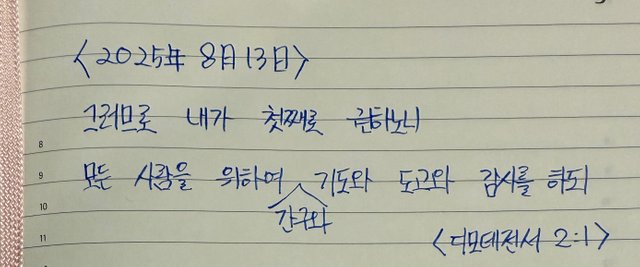 <2025年 8月 13日>
그러므로 내가 첫째로 권하노니
8
9 모든 사람을 위하여 기도와 도고와 감사를 하되
10 간구와
11 <디모데전서 2:1>